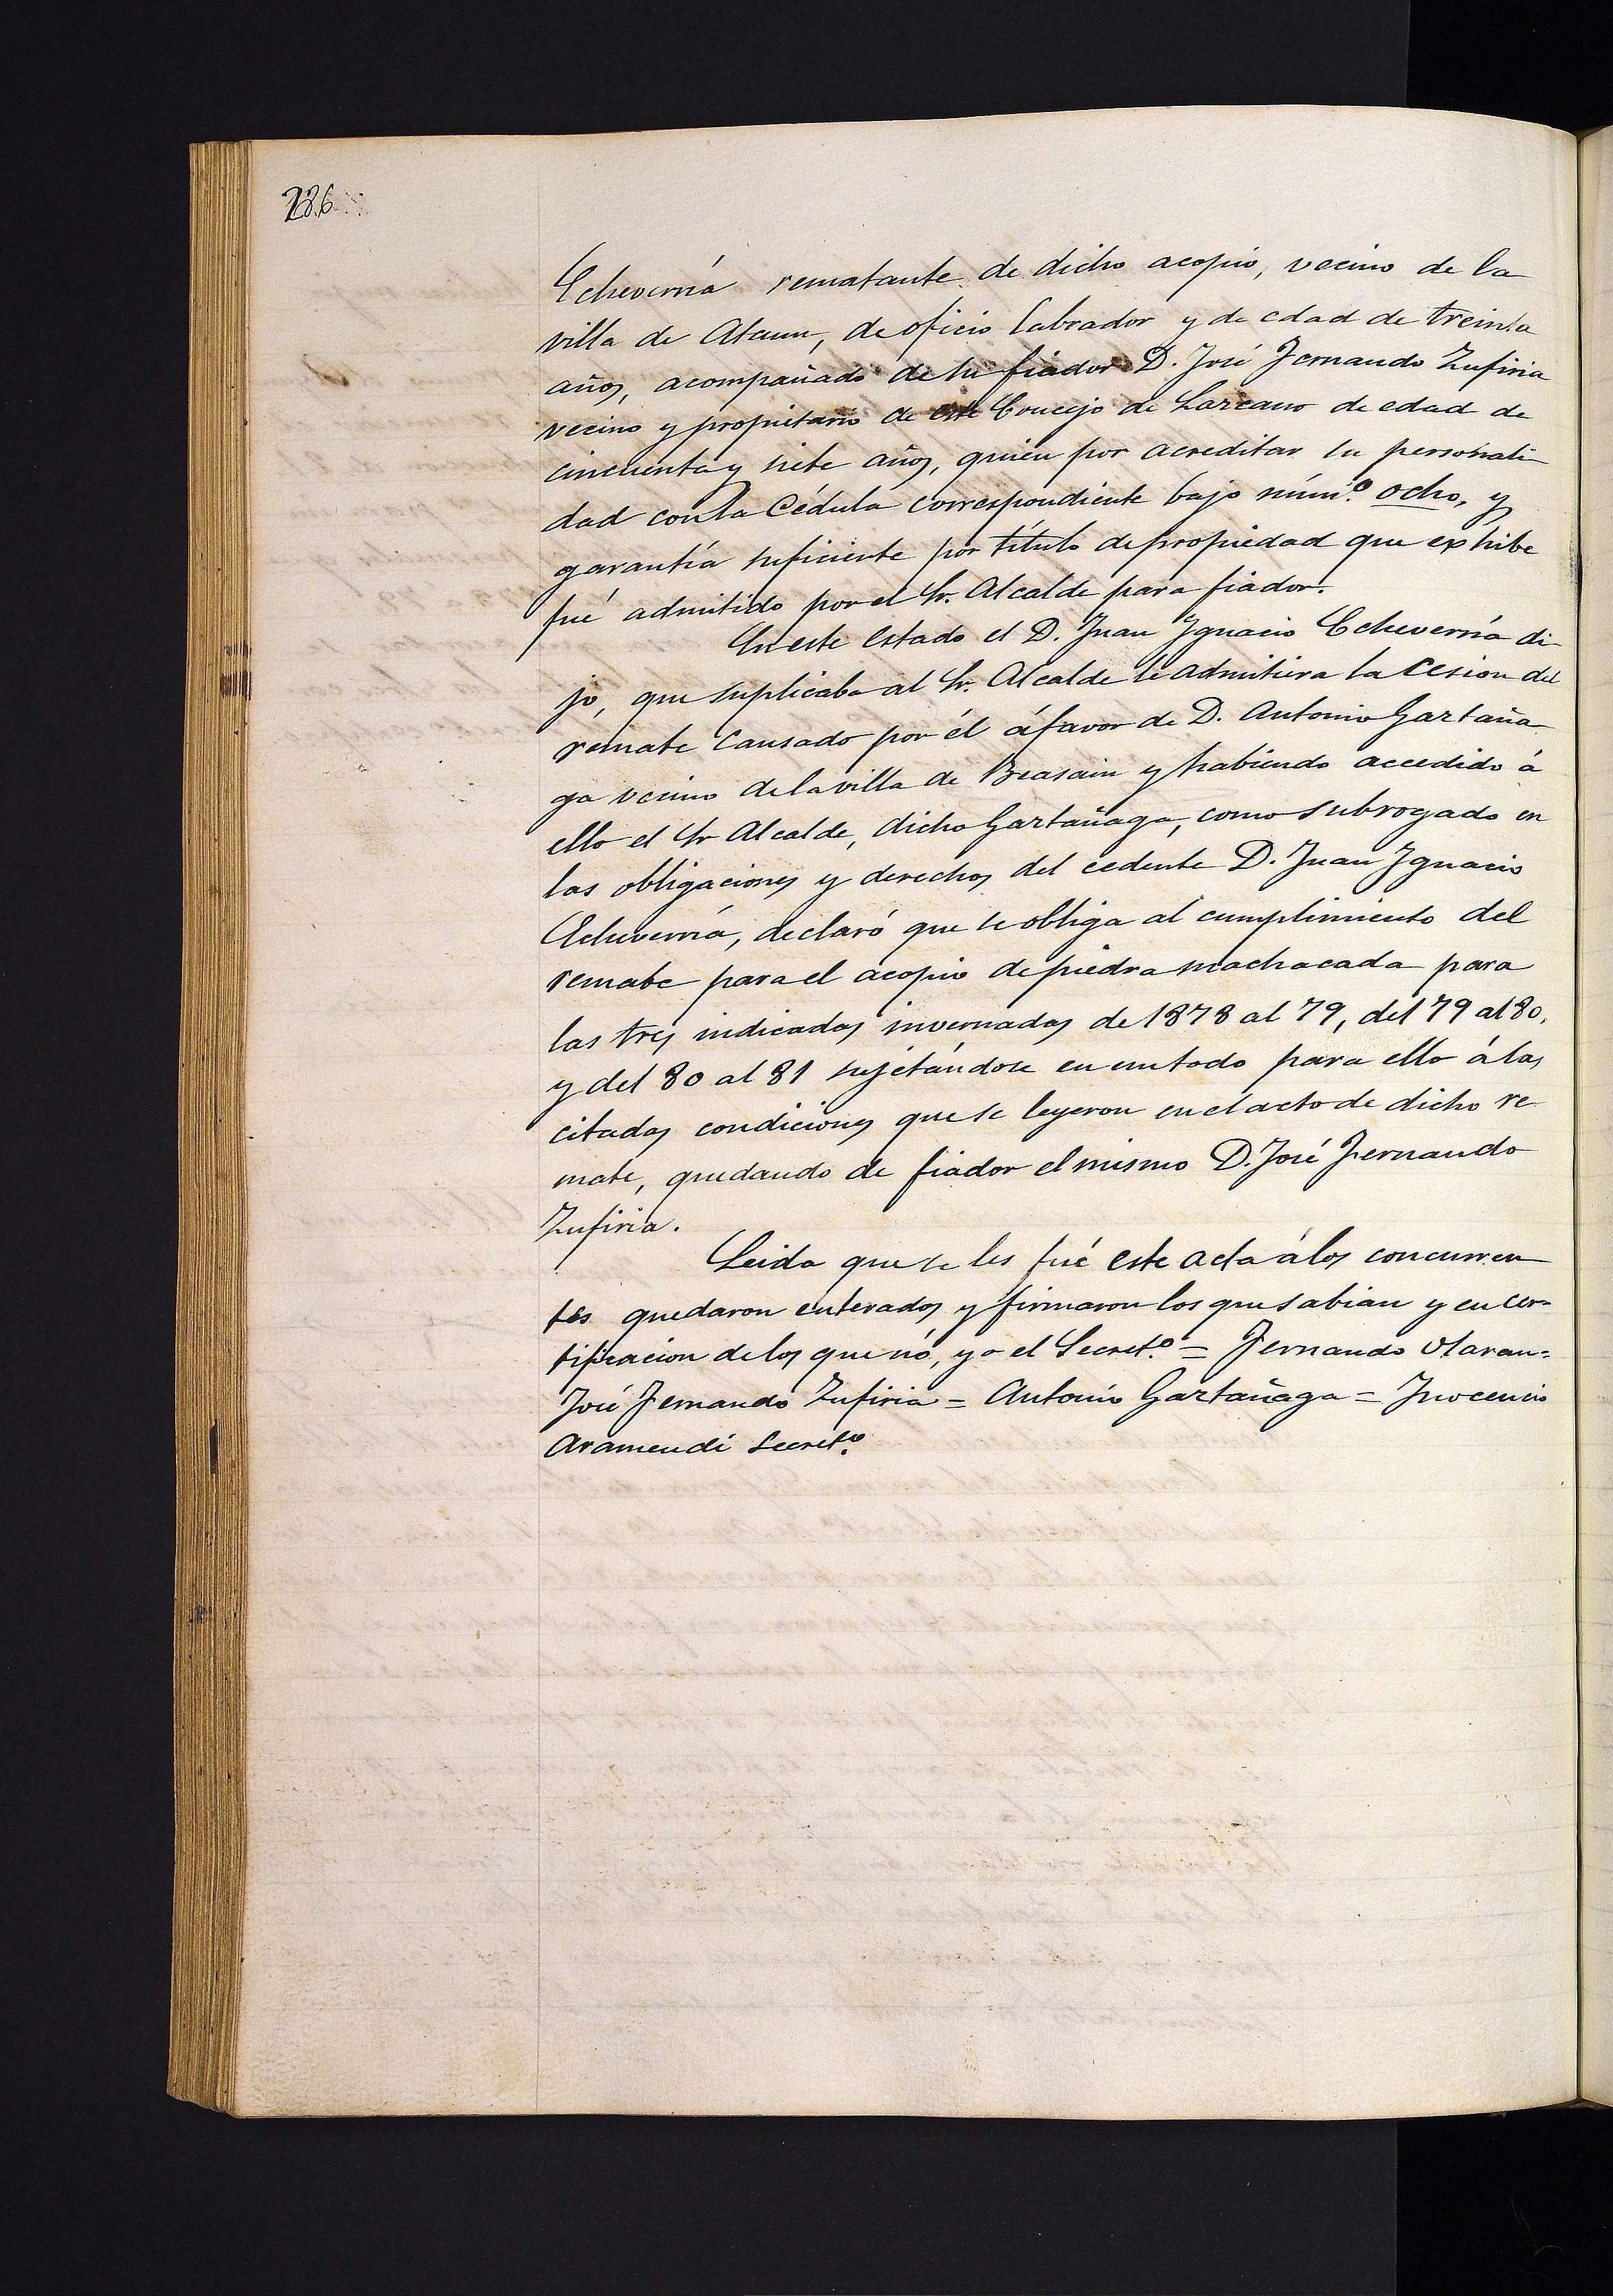 286
Echeverría rematante de dicho acopio, vecino de la
villa de Ataun, de oficio labrador y de edad de treinta
años, acompañado de su fiador D. José Fernando Zufiria
vecino y propietario de este Concejo de Lazcano de edad de
cincuenta y siete años, quien por acreditar su personali-
dad con la Cédula correspondiente bajo núm.º ocho, y
garantía suficiente por título de propiedad que exhibe
fué admitido por el Sr. Alcalde para fiador.
En este estado el D. Juan Ygnacio Echeverría di-
jo, que suplicaba al Sr. Alcalde le admitiera la cesion del
remate causado por él á favor de D. Antonio Gartaña
ga vecino de la villa de Beasain y habiendo accedido á
ello el Sr Alcalde, dicho Gartañaga, como subrogado en
las obligaciones y derechos del cedente D. Juan Ygnacio
Echeverría, declaró que se obliga al cumplimiento del
remate para el acopio de piedra machacada para
las tres indicadas invernadas de 1878 al 79, del 79 al 80,
y del 80 al 81 sujetándose en un todo para ello á las
citadas condiciones que se leyeron en el acto de dicho re
mate, quedando de fiador el mismo D. José Fernando
Zufiria.
Leida que se les fué este acta á los concurren
tes quedaron enterados y firmaron los que sabian y en cer-
tificacion de los que nó, yo el Secret.º = Fernando Olaran =
José Fernando Zufiria = Antonio Gartañaga = Ynocencio
Aramendi Secret.º